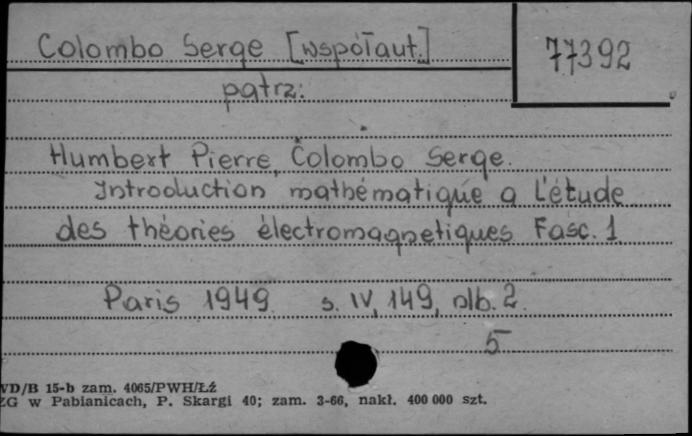 Colombo Serge [współaut.]
77392
patrz:
Humbert Pierre, Colombo Serge.
Introduction mathématique a l'étude
des théories électromagnetiques Fasc. 1
Paris 1949 s. IV, 149, nlb. 2
5
WD/B 15-b zam. 4065/PWH/Łź
ZG w Pabianicach, P. Skargi 40; zam. 3-66, nakł. 400 000 szt.